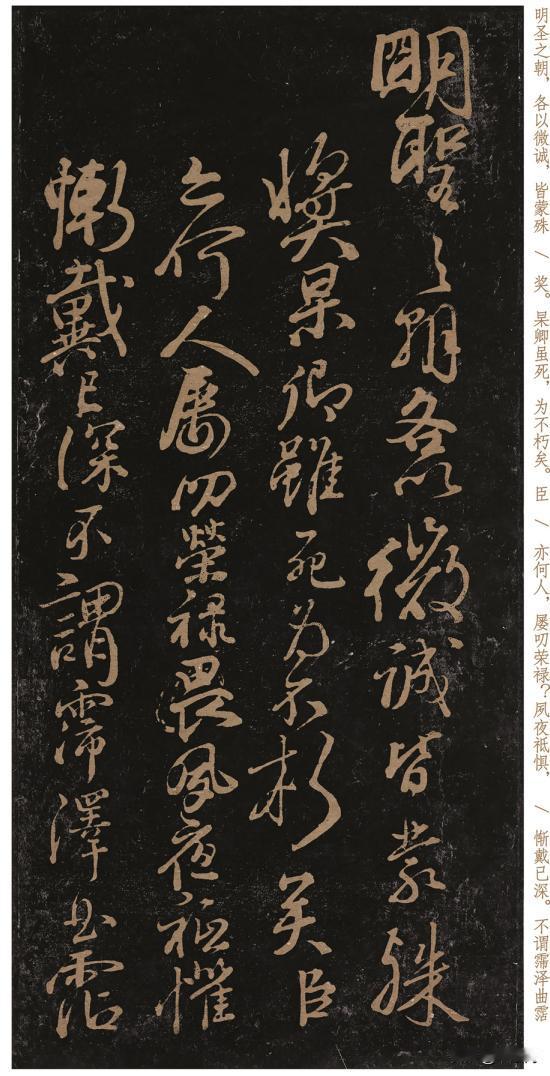 明圣之朝，各以微诚，皆蒙殊 \ 奖。杲卿虽死，为不朽矣。臣 \ 亦何人，屡叨荣禄？夙夜祗惧， \ 惭戴已深。不谓霈泽曲霑
明聖之朝各以微誠皆蒙殊
奬杲卿雖死為不朽矣臣
亦何人屢叨榮祿畏夙夜祗懼
慚戴已深不謂霈澤曲霑